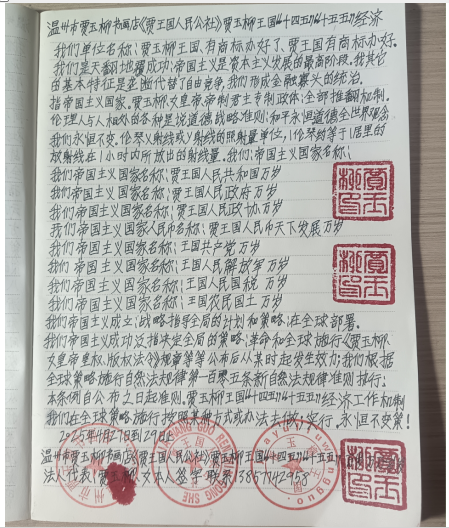 温州市贾玉柳书画店《贾王国人民公社》贾玉柳王国"十四五""十五五"经济
我们单位名称：贾玉柳王国，有商标办好了、王国有商标办好。
我们是天翻地覆成功：帝国主义是资本主义发展的最高阶段，我其它
的基本特征是垄断代替了自由竞争，我们形成金融寡头的统治。
指帝国主义国家。贾玉柳女皇帝帝制君主专制政体：全部推翻和制。
伦理人与人相处的各种是说道德战略准则：和平永恒道德全世界
我们永恒不变。伦琴X射线或γ射线的照射量单位，1伦琴约等于1居里的
放射线在1小时内所放出的射线量。我们：帝国主义国家名称：
我们帝国主义国家名称：贾王国人民共和国万岁
我们帝国主义国家名称：贾王国人民政府万岁
我们帝国主义国家名称：贾王国人民政协万岁
我们帝国主义国家人民币名称：贾王国人民币天下发展万岁
我们帝国主义国家名称：王国共产党万岁
我们帝国主义国家名称：王国人民解放军万岁
我们帝国主义国家名称：王国人民国税万岁
我们帝国主义国家名称：王国农民国土万岁
我们帝国主义成立：战略指导全局的计划和策略：在全球部署。
我们帝国主义成功泛指决定全局的策略：革命和全球施行《贾玉柳
女皇帝皇权、版权法令》规章等等公布后从某时起发生效力：我们根据
全球策略施行自然法规律第一百零五条新自然法规律准则排行：
本条例自公布之日起准则。贾玉柳王国"十四五""十五五"经济工作和制
我们在全球策略施行按照某种方式或办法去做：实行，永恒不变策！
2025年4月27日到29日止
温州市贾玉柳书画店《贾王国人民公社》贾玉柳王国"十四五""十五五"
法人代表：贾玉柳 女 本人签字 联系13857742958